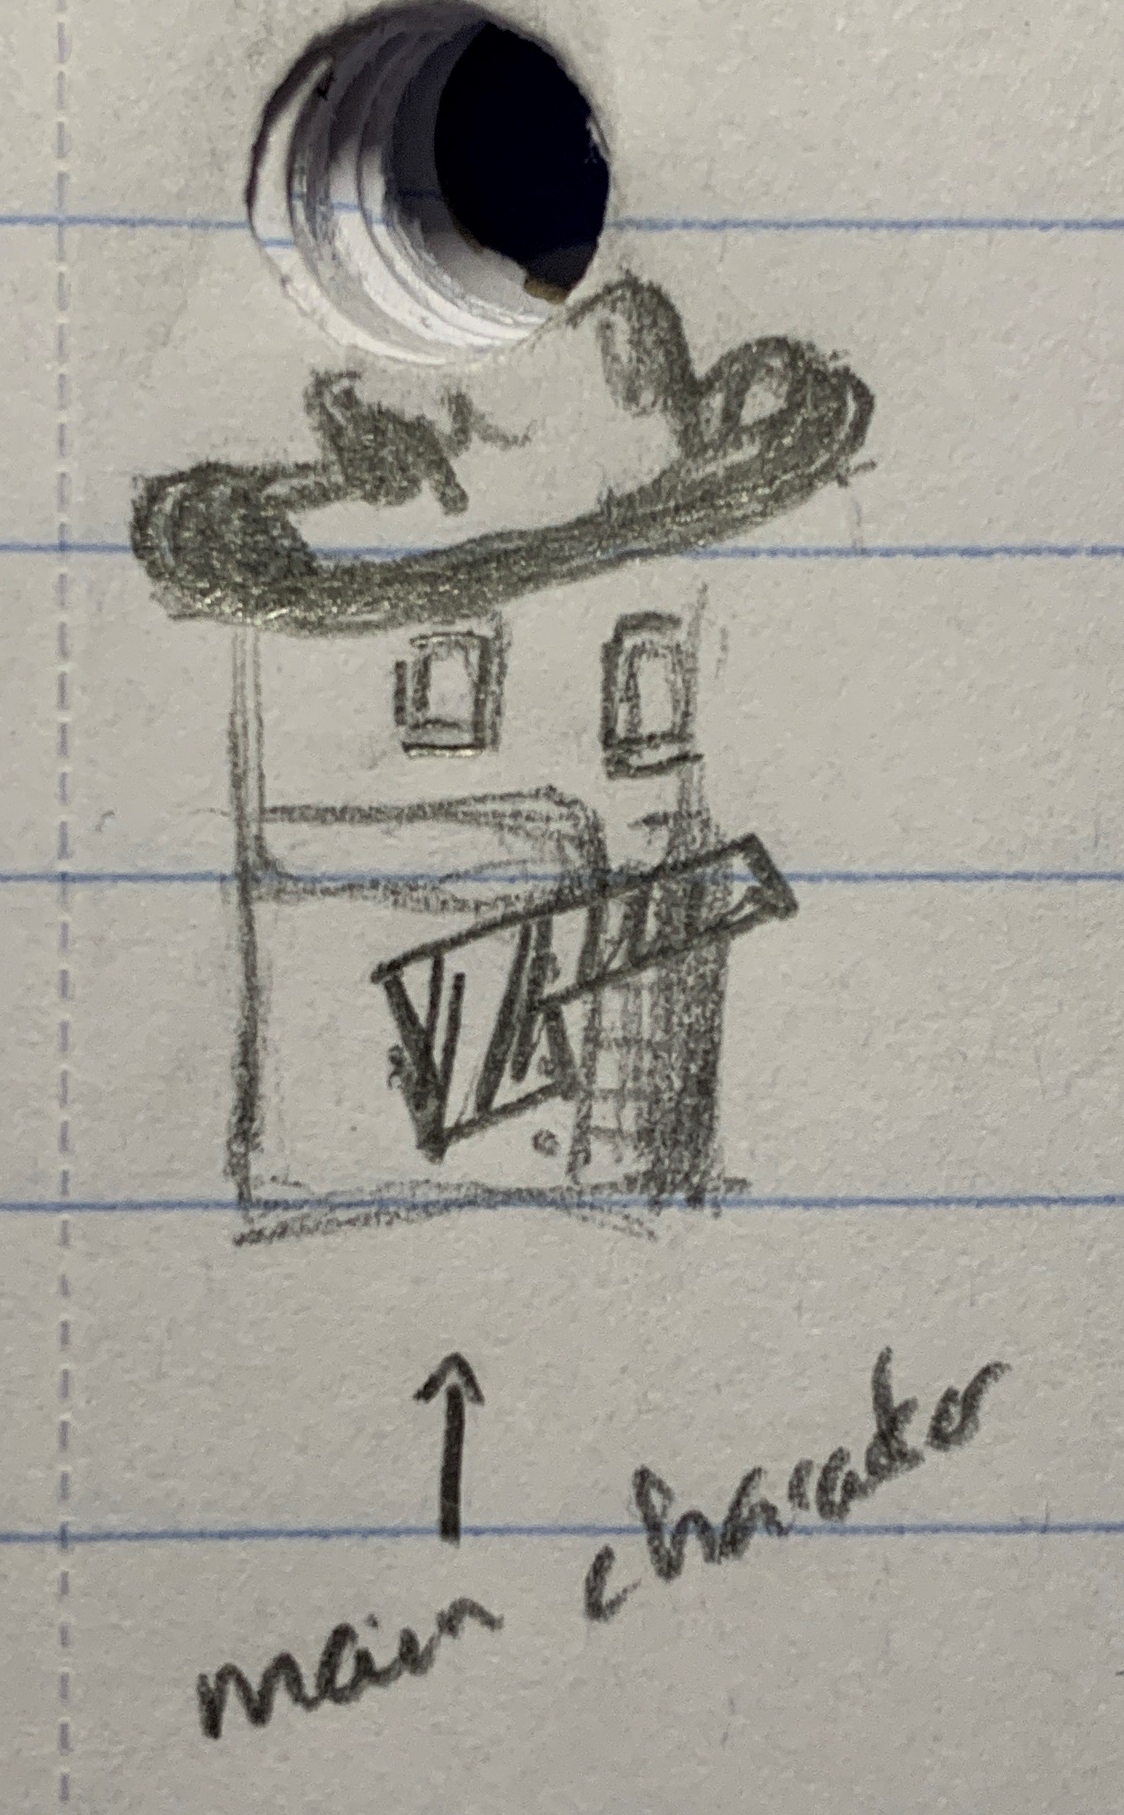 main character